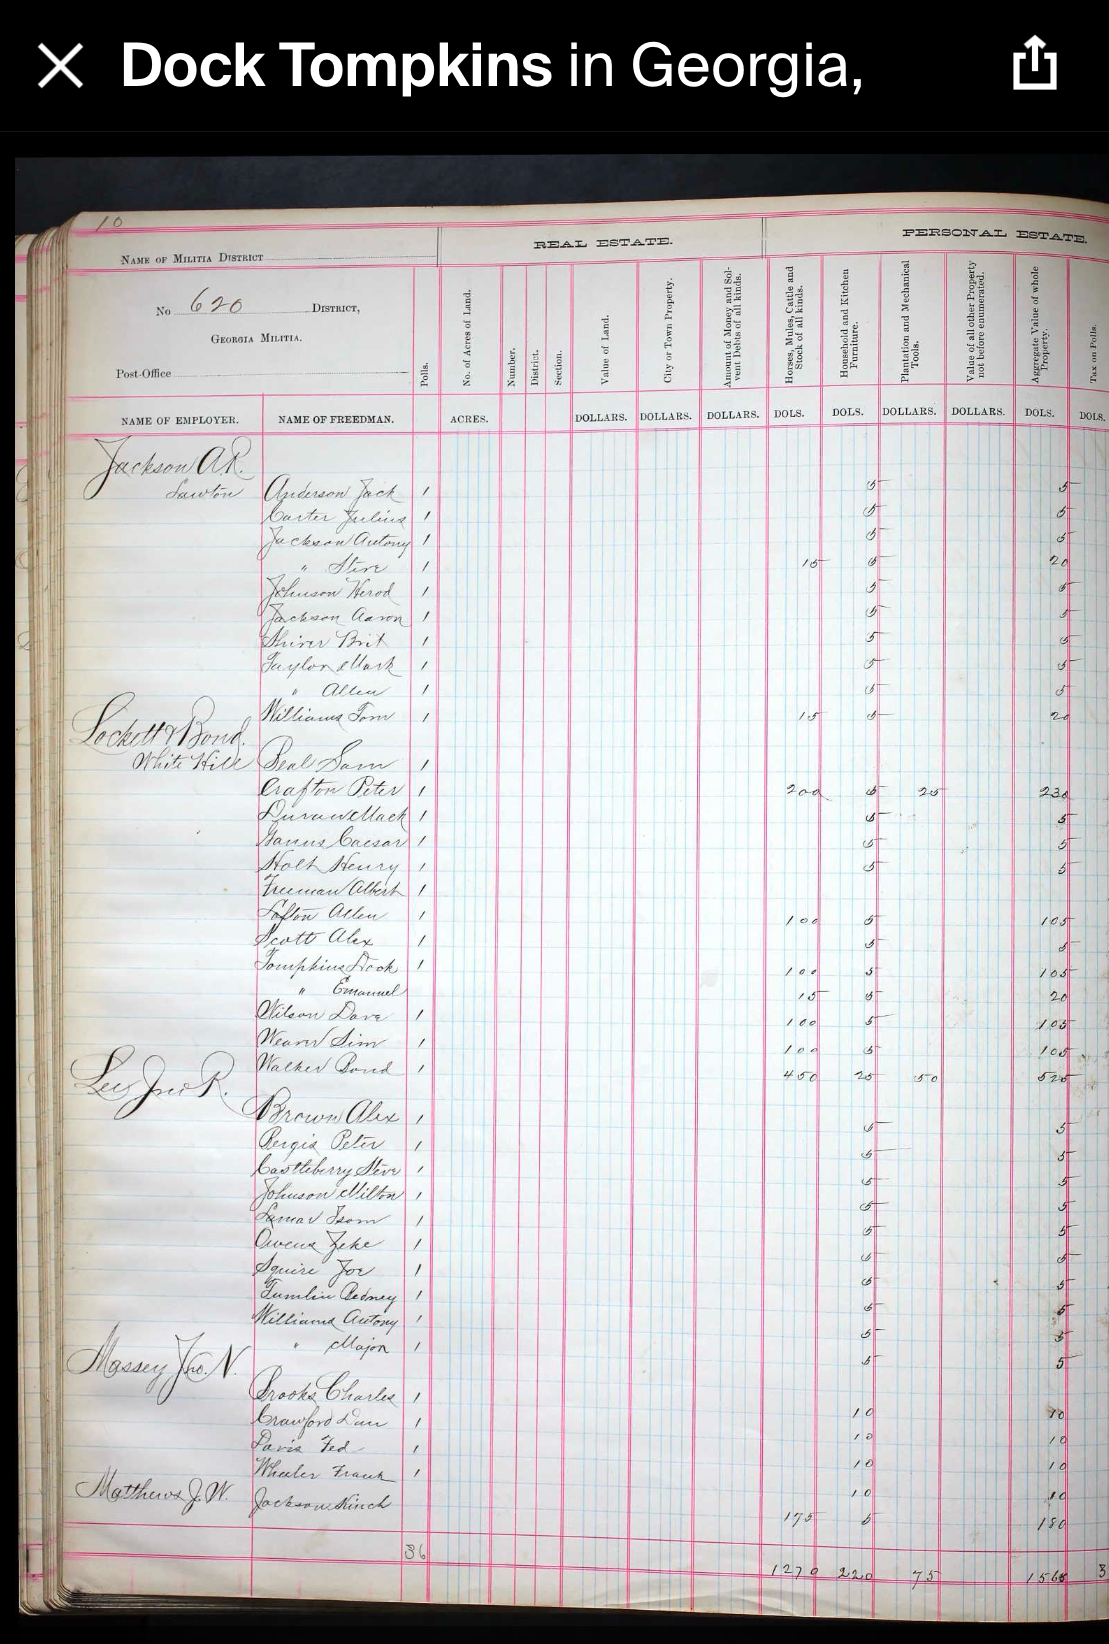 Dock Tompkins in Georgia,
10
NAME OF MILITIA DISTRICT
REAL ESTATE.
PERSONAL ESTATE.
No 620 DISTRICT,
GEORGIA MILITIA.
Post-Office
Polls.
No. of Acres of Land.
Number.
District.
Section.
Value of Land.
City or Town Property.
Amount of Money and Solvent Debts of all kinds.
Horses, Mules, Cattle and Stock of all kinds.
Household and Kitchen Furniture.
Plantation and Mechanical Tools.
Value of all other Property not before enumerated.
Aggregate Value of whole Property.
Tax on Polls.
NAME OF EMPLOYER. NAME OF FREEDMAN. ACRES. DOLLARS. DOLLARS. DOLLARS. DOLS. DOLS. DOLLARS. DOLLARS. DOLS. DOLS.
Jackson A.R.
Lawton Anderson Jack 1 5 5
Carter Julius 1 5 5
Jackson Antony 1 5 5
" Steve 1 15 5 20
Johnson Herod 1 5 5
Jackson Aaron 1 5 5
Shiver Brit 1 5 5
Taylor Mark 1 5 5
" Allen 1 5 5
Williams Tom 1 15 5 20
Lockett & Bond.
White Hill Beal Sam 1
Crafton Peter 1 200 5 25 230
Mack 1 5 5
Caesar 1 5 5
Holt Henry 1 5 5
Freeman Albert 1
Lofton Allen 1 100 5 105
Scott Alex 1 5 5
Tompkins Dock 1 100 5 105
" Emanuel 15 5 20
Wilson Dave 1 100 5 105
Weaver Sim 1 100 5 105
Walker Bond 1 450 25 50 525
Lee Jno R.
Brown Alex 1 5 5
Peter 1 5 5
Castleberry Steve 1 5 5
Johnson Milton 1 5 5
Lamar Isom 1 5 5
Owens Zeke 1 5 5
Squire Joe 1 5 5
Tumlin Pedney 1 5 5
Williams Antony 1 5 5
" Major 1 5 5
Massey Jno. N.
Brooks Charles 1 10 10
Crawford Dan 1 10 10
Davis Ted 1 10 10
Wheeler Frank 1 10 10
Matthews J.W. Jackson Kinch 175 5 180
36 1270 220 75 1565 3